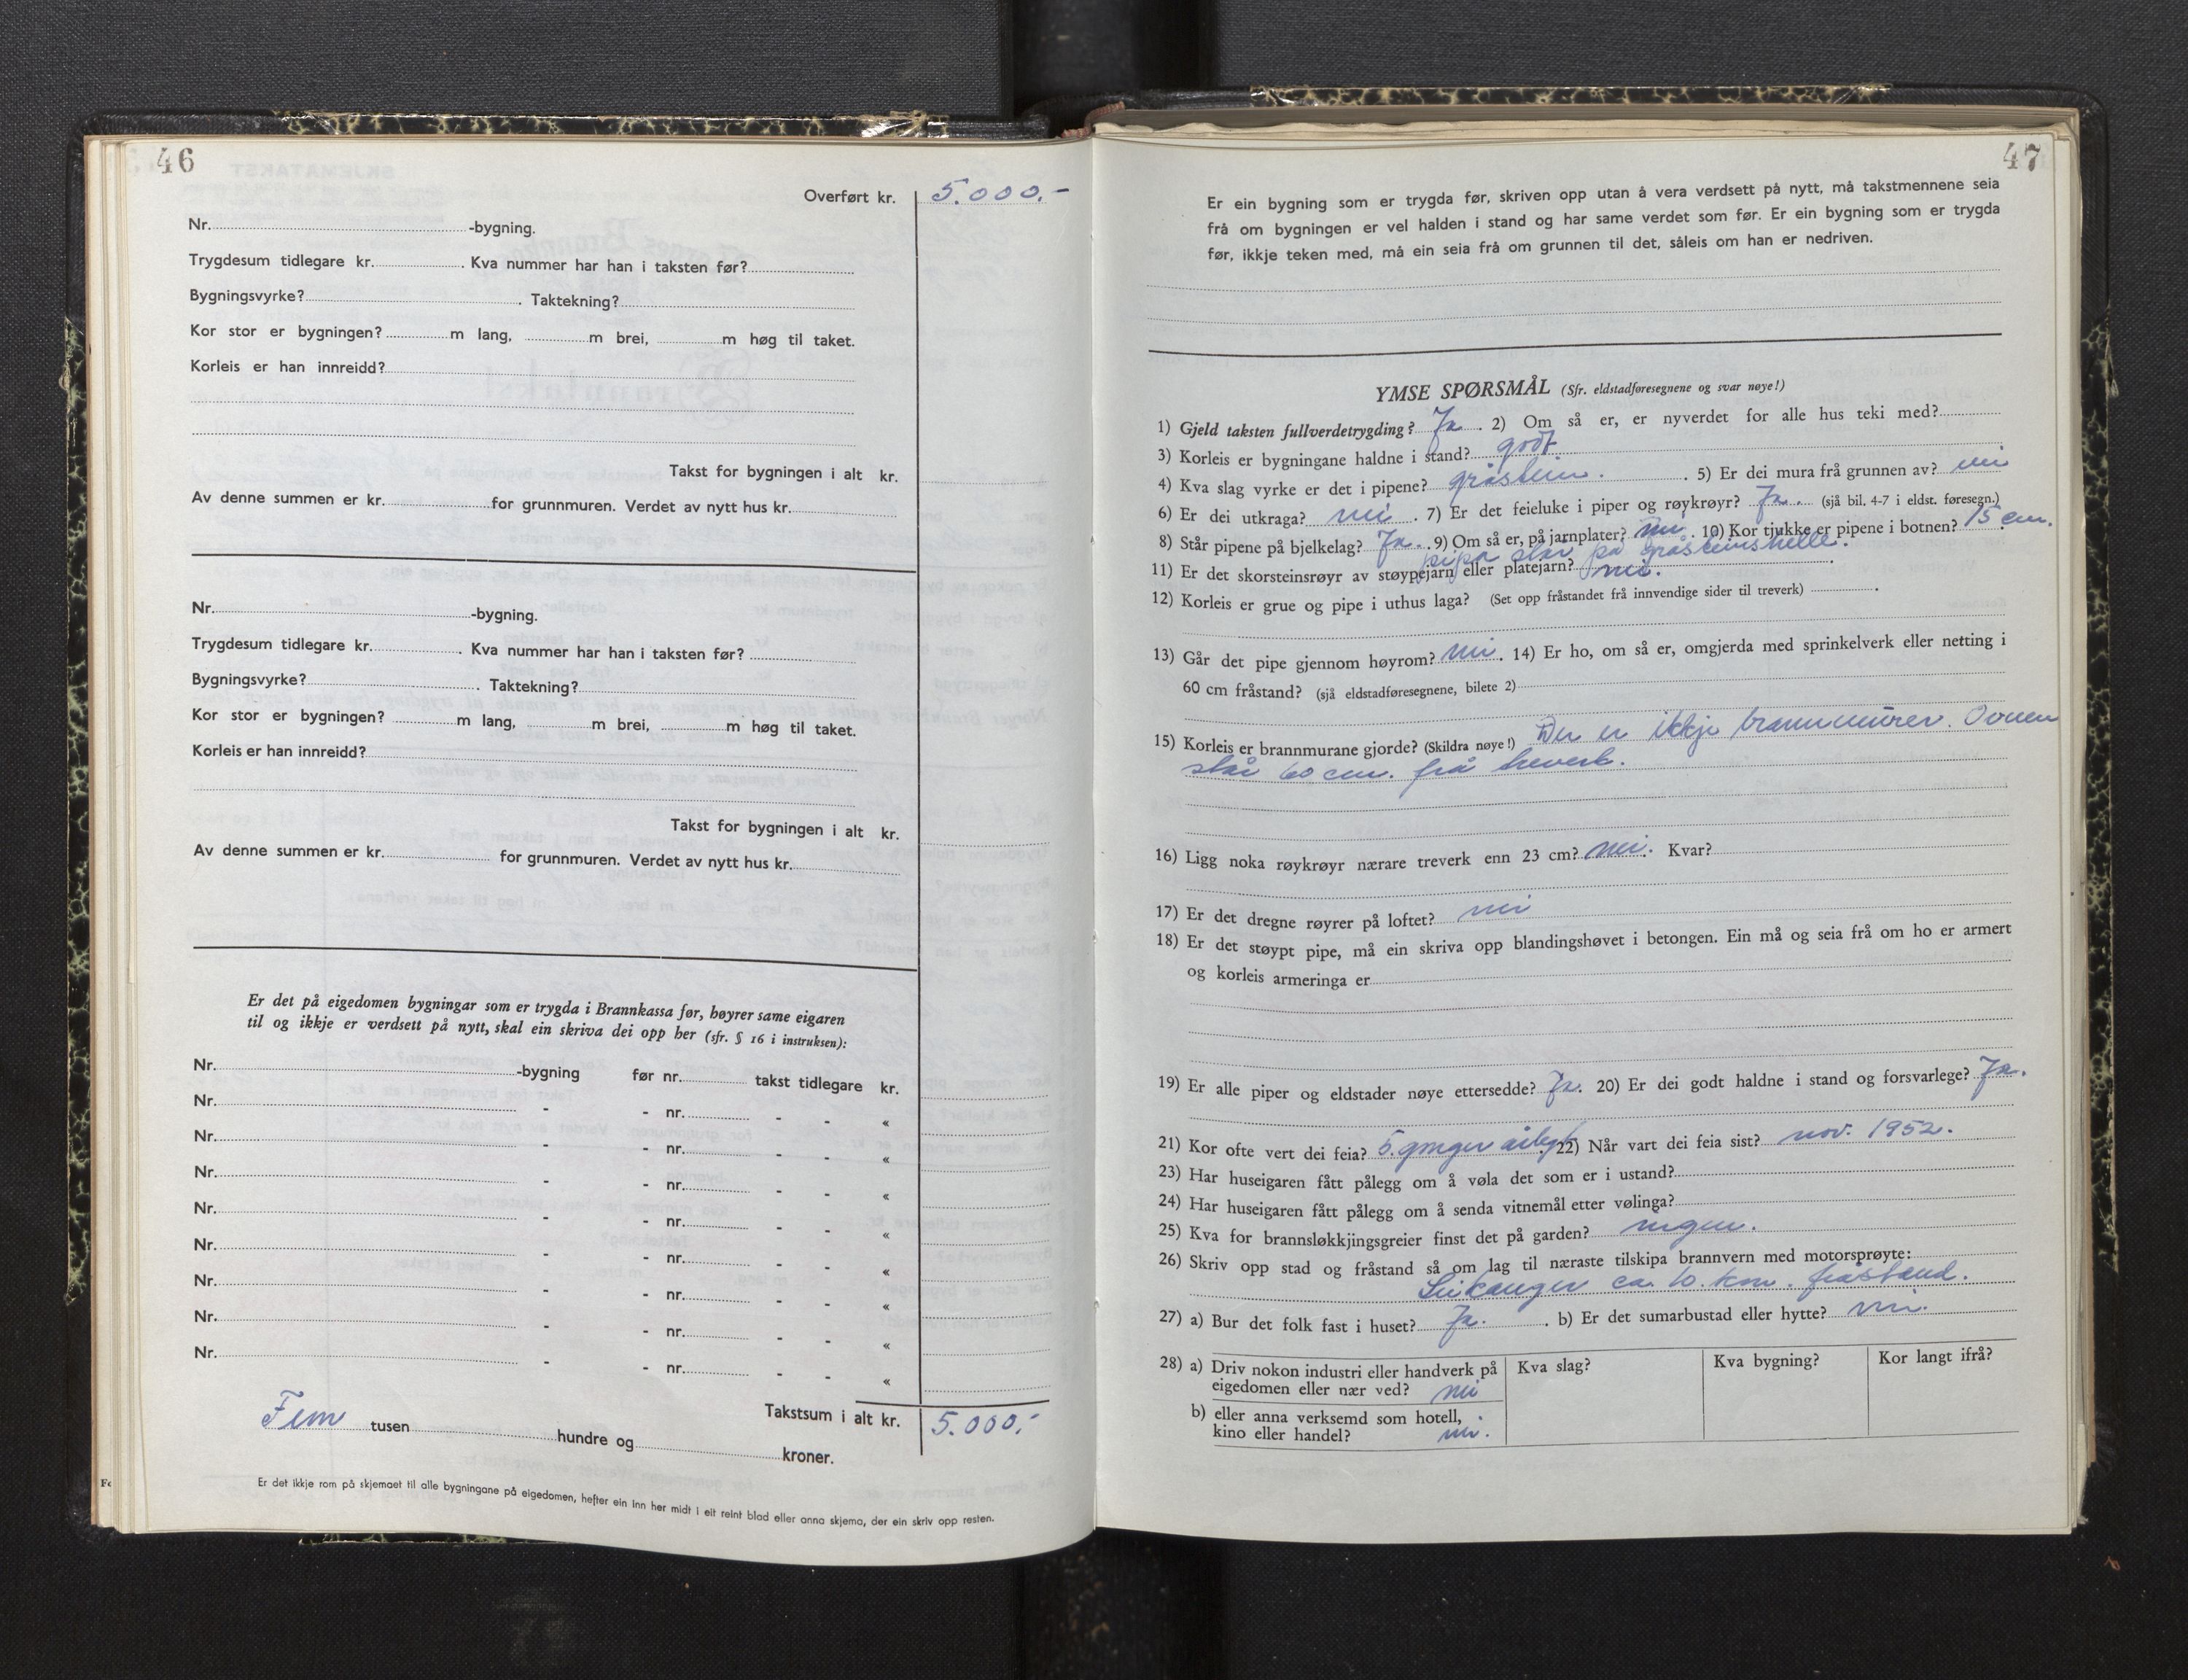 46
Overført kr. 5.000.-
Nr. -bygning.
Trygdesum tidlegare kr. . Kva nummer har han i taksten før?
Bygningsvyrke? . Taktekning?
Kor stor er bygningen? m lang, m brei, m høg til taket.
Korleis er han innreidd?
Takst for bygningen i alt kr.
Av denne summen er kr. for grunnmuren. Verdet av nytt hus kr.
Nr. -bygning.
Trygdesum tidlegare kr. . Kva nummer har han i taksten før?
Bygningsvyrke? . Taktekning?
Kor stor er bygningen? m lang, m brei, m høg til taket.
Korleis er han innreidd?
Takst for bygningen i alt kr.
Av denne summen er kr. for grunnmuren. Verdet av nytt hus kr.
Er det på eigedomen bygningar som er trygda i Brannkassa før, høyrer same eigaren
til og ikkje er verdsett på nytt, skal ein skriva dei opp her (sfr. § 16 i instruksen):
Nr. -bygning før nr. takst tidlegare kr.
Nr. - - nr. - - «
Nr. - - nr. - - «
Nr. - - nr. - - «
Nr. - - nr. - - «
Nr. - - nr. - - «
Nr. - - nr. - - «
Nr. - - nr. - - «
Nr. - - nr. - - «
Takstsum i alt kr. 5.000.-
Fem tusen hundre og kroner.
Er det ikkje rom på skjemaet til alle bygningane på eigedomen, hefter ein inn her midt i eit reint blad eller anna skjema, der ein skriv opp resten.
47
Er ein bygning som er trygda før, skriven opp utan å vera verdsett på nytt, må takstmennene seia
frå om bygningen er vel halden i stand og har same verdet som før. Er ein bygning som er trygda
før, ikkje teken med, må ein seia frå om grunnen til det, såleis om han er nedriven.
YMSE SPØRSMÅL (Sfr. eldstadføresegnene og svar nøye!)
1) Gjeld taksten fullverdetrygding? Ja . 2) Om så er, er nyverdet for alle hus teki med?
3) Korleis er bygningane haldne i stand? godt
4) Kva slag vyrke er det i pipene? gråstein . . 5) Er dei mura frå grunnen av? nei
6) Er dei utkraga? nei . 7) Er det feieluke i piper og røykrøyr? Ja. (sjå bil. 4-7 i eldst. føresegn.)
8) Står pipene på bjelkelag? Ja. . 9) Om så er, på jarnplater? nei . 10) Kor tjukke er pipene i botnen? 15 cm.
pipa står på gråsteinshelle.
11) Er det skorsteinsrøyr av støypejarn eller platejarn? nei.
12) Korleis er grue og pipe i uthus laga? (Set opp fråstandet frå innvendige sider til treverk) .
13) Går det pipe gjennom høyrom? nei . 14) Er ho, om så er, omgjerda med sprinkelverk eller netting i
60 cm fråstand? (sjå eldstadføresegnene, bilete 2)
15) Korleis er brannmurane gjorde? (Skildra nøye!) Der er ikkje brannmurer. Ovnen
står 60 cm. frå treverk.
16) Ligg noka røykrøyr nærare treverk enn 23 cm? nei. Kvar?
17) Er det dregne røyrer på loftet? nei
18) Er det støypt pipe, må ein skriva opp blandingshøvet i betongen. Ein må og seia frå om ho er armert
og korleis armeringa er
19) Er alle piper og eldstader nøye ettersedde? Ja. 20) Er dei godt haldne i stand og forsvarlege? Ja.
21) Kor ofte vert dei feia? 5 gonger årlegt 22) Når vart dei feia sist? nov. 1952.
23) Har huseigaren fått pålegg om å vøla det som er i ustand?
24) Har huseigaren fått pålegg om å senda vitnemål etter vølinga?
25) Kva for brannsløkkjingsgreier finst det på garden? ingen.
26) Skriv opp stad og fråstand så om lag til næraste tilskipa brannvern med motorsprøyte:
Leikanger ca. 10. km. fråstand.
27) a) Bur det folk fast i huset? Ja. . b) Er det sumarbustad eller hytte? nei.
28) a) Driv nokon industri eller handverk på
eigedomen eller nær ved? nei
Kva slag? Kva bygning? Kor langt ifrå?
b) eller anna verksemd som hotell,
kino eller handel? nei.